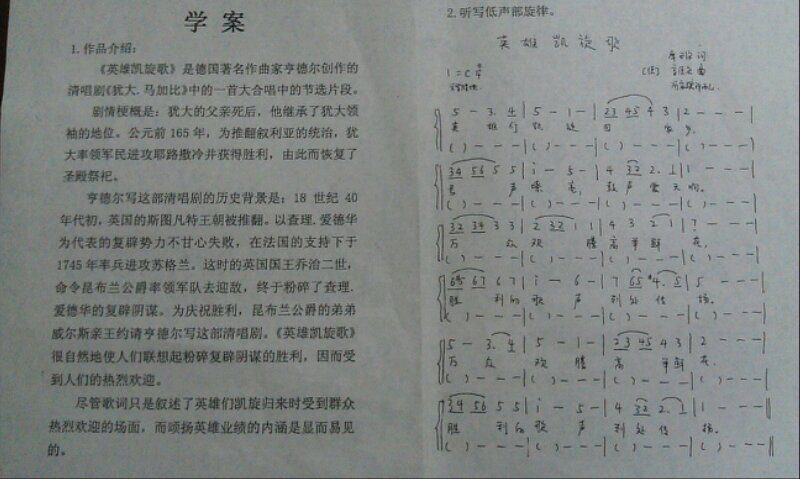 学 案
1.作品介绍：
《英雄凯旋歌》是德国著名作曲家亨德尔创作的
清唱剧《犹大.马加比》中的一首大合唱中的节选片段。
剧情梗概是：犹大的父亲死后，他继承了犹大领
袖的地位。公元前 165 年，为推翻叙利亚的统治，犹
大率领军民进攻耶路撒冷并获得胜利，由此而恢复了
圣殿祭祀。
亨德尔写这部清唱剧的历史背景是：18 世纪 40
年代初，英国的斯图凡特王朝被推翻。以查理.爱德华
为代表的复辟势力不甘心失败，在法国的支持下于
1745 年率兵进攻苏格兰。这时的英国国王乔治二世，
命令昆布兰公爵率领军队去迎敌，终于粉碎了查理.
爱德华的复辟阴谋。为庆祝胜利，昆布兰公爵的弟弟
威尔斯亲王约请亨德尔写这部清唱剧。《英雄凯旋歌》
很自然地使人们联想起粉碎复辟阴谋的胜利，因而受
到人们的热烈欢迎。
尽管歌词只是叙述了英雄们凯旋归来时受到群众
热烈欢迎的场面，而颂扬英雄业绩的内涵是显而易见
的。
2.听写低声部旋律。
英 雄 凯 旋 歌
词
1=C
曲
5 - 3. 4 | 5 - 1 - | 23 45 4 3 | 2 - - -
英 雄 们 凯 旋 回 家 乡，
( ) - - - | ( ) - - - | ( ) - - - | ( ) - - -
34 56 5 5 | i - 5 - | 4 32 2. 1 | 1 - - -
声 嘹 亮， 鼓 声 震 天 响。
( ) - - - | ( ) - - - | ( ) - - - | ( ) - - -
32 34 3 3 | 2 32 1 1 | 4 3 2 1 | 7 - - -
万 众 欢 腾 高 举 鲜 花，
( ) - - - | ( ) - - - | ( ) - - - | ( ) - - -
67 6 7 | i - 6 - | 7 65 #4. 5 | 5 - - -
胜 利 的 歌 声 到 处 传 扬。
( ) - - - | ( ) - - - | ( ) - - - | ( ) - - -
5 - 3. 4 | 5 - 1 - | 23 45 4 3 | 2 - - -
万 众 欢 腾 高 举 鲜 花，
( ) - - - | ( ) - - - | ( ) - - - | ( ) - - -
34 56 5 5 | i - 5 - | 4 32 2. 1 | 1 - - -
胜 利 的 歌 声 到 处 传 扬。
( ) - - - | ( ) - - - | ( ) - - - | ( ) - - -